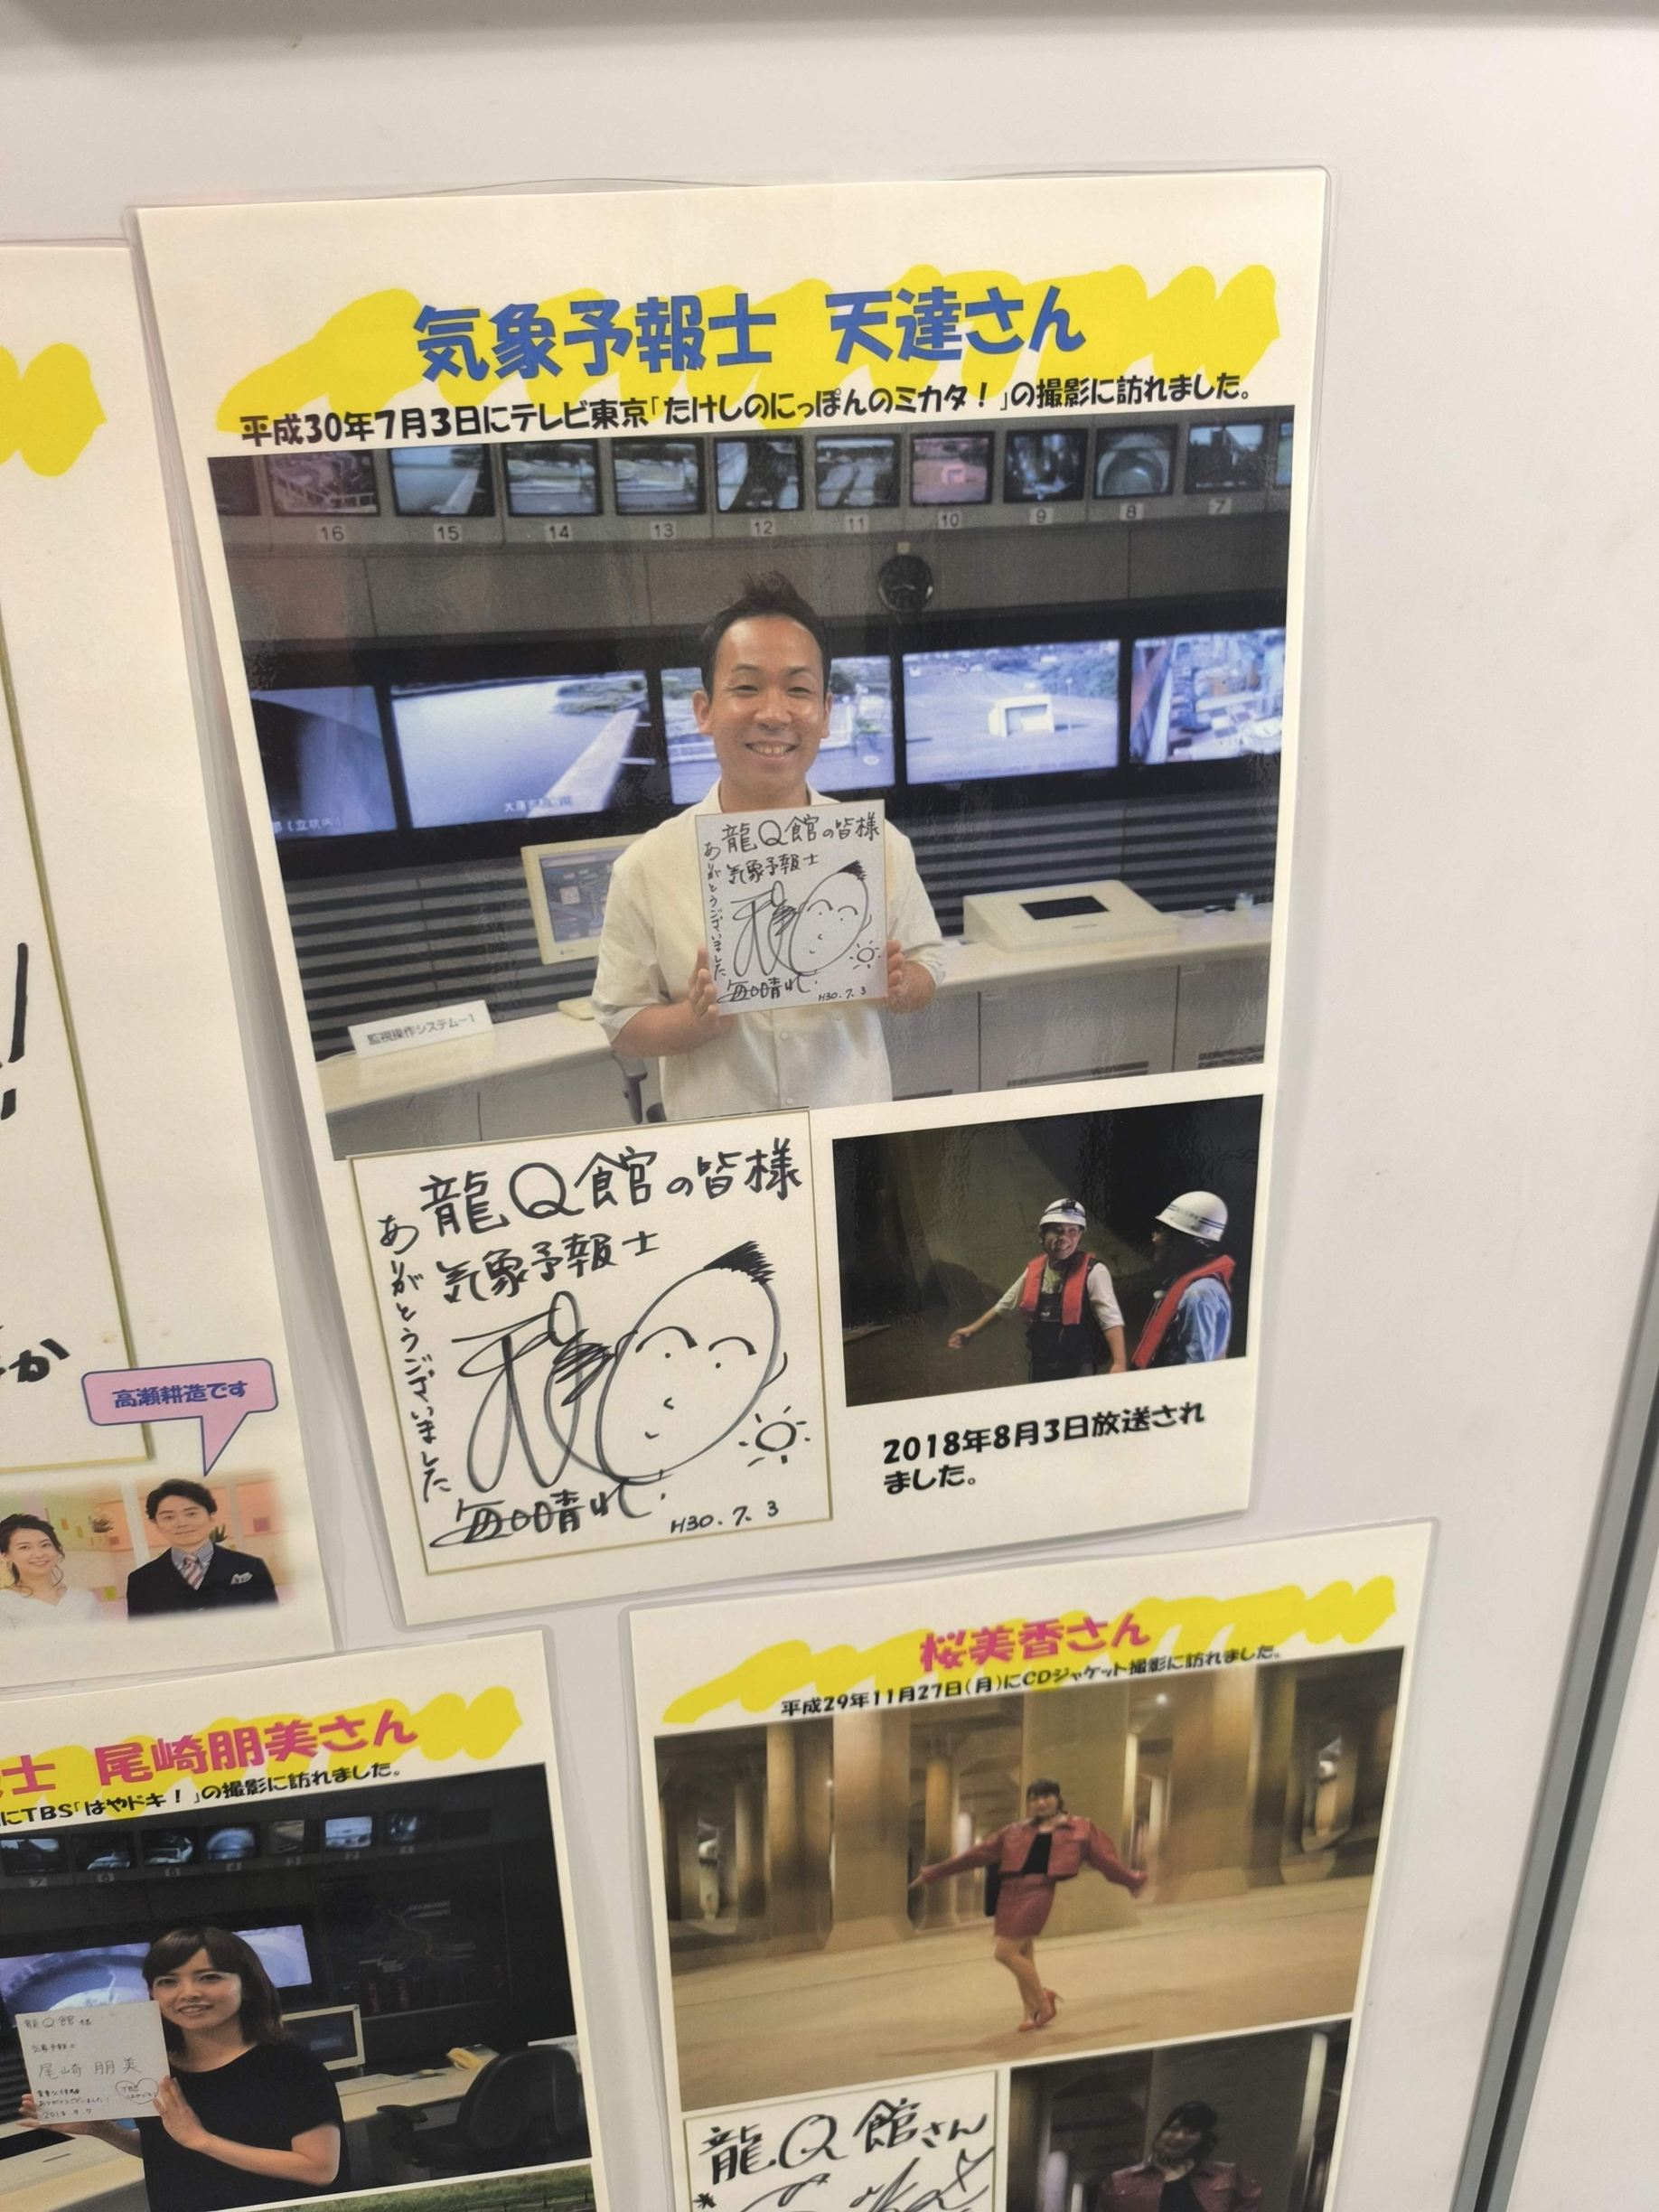 気象予報士 天達さん
平成30年7月3日にテレビ東京「たけしのにっぽんのミカタ！」の撮影に訪れました。
16
15
14
13
12
11
10
9
8
7
龍Q館の皆様
気象予報士
ありがとうございました
毎日晴れ
H30.7.3
監視操作システム-1
龍Q館の皆様
気象予報士
ありがとうございました
毎日晴れ
H30.7.3
2018年8月3日放送され
ました。
か
高瀬耕造です
士 尾崎朋美さん
にTBS「はやドキ！」の撮影に訪れました。
7
6
5
4
3
2
1
龍Q館様
尾崎朋美
桜美香さん
平成29年11月27日(月)にCDジャケット撮影に訪れました。
龍Q館さん